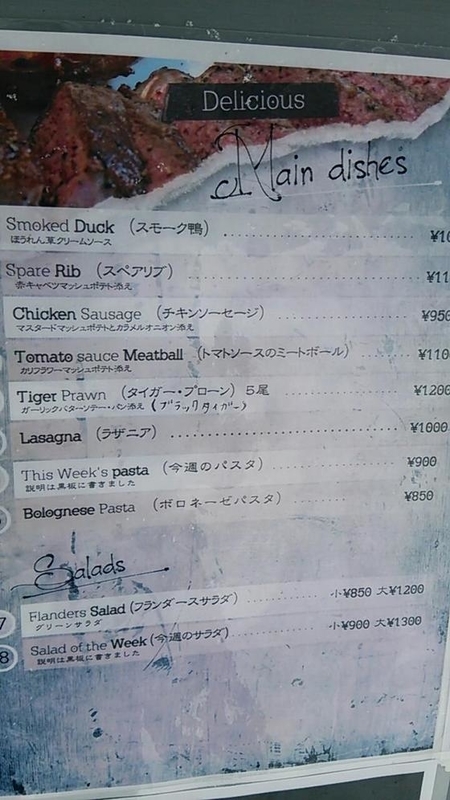 Delicious
Main dishes
Smoked Duck (スモーク鴨) ¥10
ほうれん草クリームソース
Spare Rib (スペアリブ) ¥11
赤キャベツマッシュポテト添え
Chicken Sausage (チキンソーセージ) ¥950
マスタードマッシュポテトとカラメルオニオン添え
Tomato sauce Meatball (トマトソースのミートボール) ¥110
カリフラワーマッシュポテト添え
Tiger Prawn (タイガー・プローン) 5尾 ¥1200
ガーリックバターソテー・パン添え (ブラックタイガー)
Lasagna (ラザニア) ¥1000
This Week's pasta (今週のパスタ) ¥900
説明は黒板に書きました
Bolognese Pasta (ボロネーゼパスタ) ¥850
Salads
7 Flanders Salad (フランダースサラダ) 小¥850 大¥1200
グリーンサラダ
8 Salad of the Week (今週のサラダ) 小¥900 大¥1300
説明は黒板に書きました